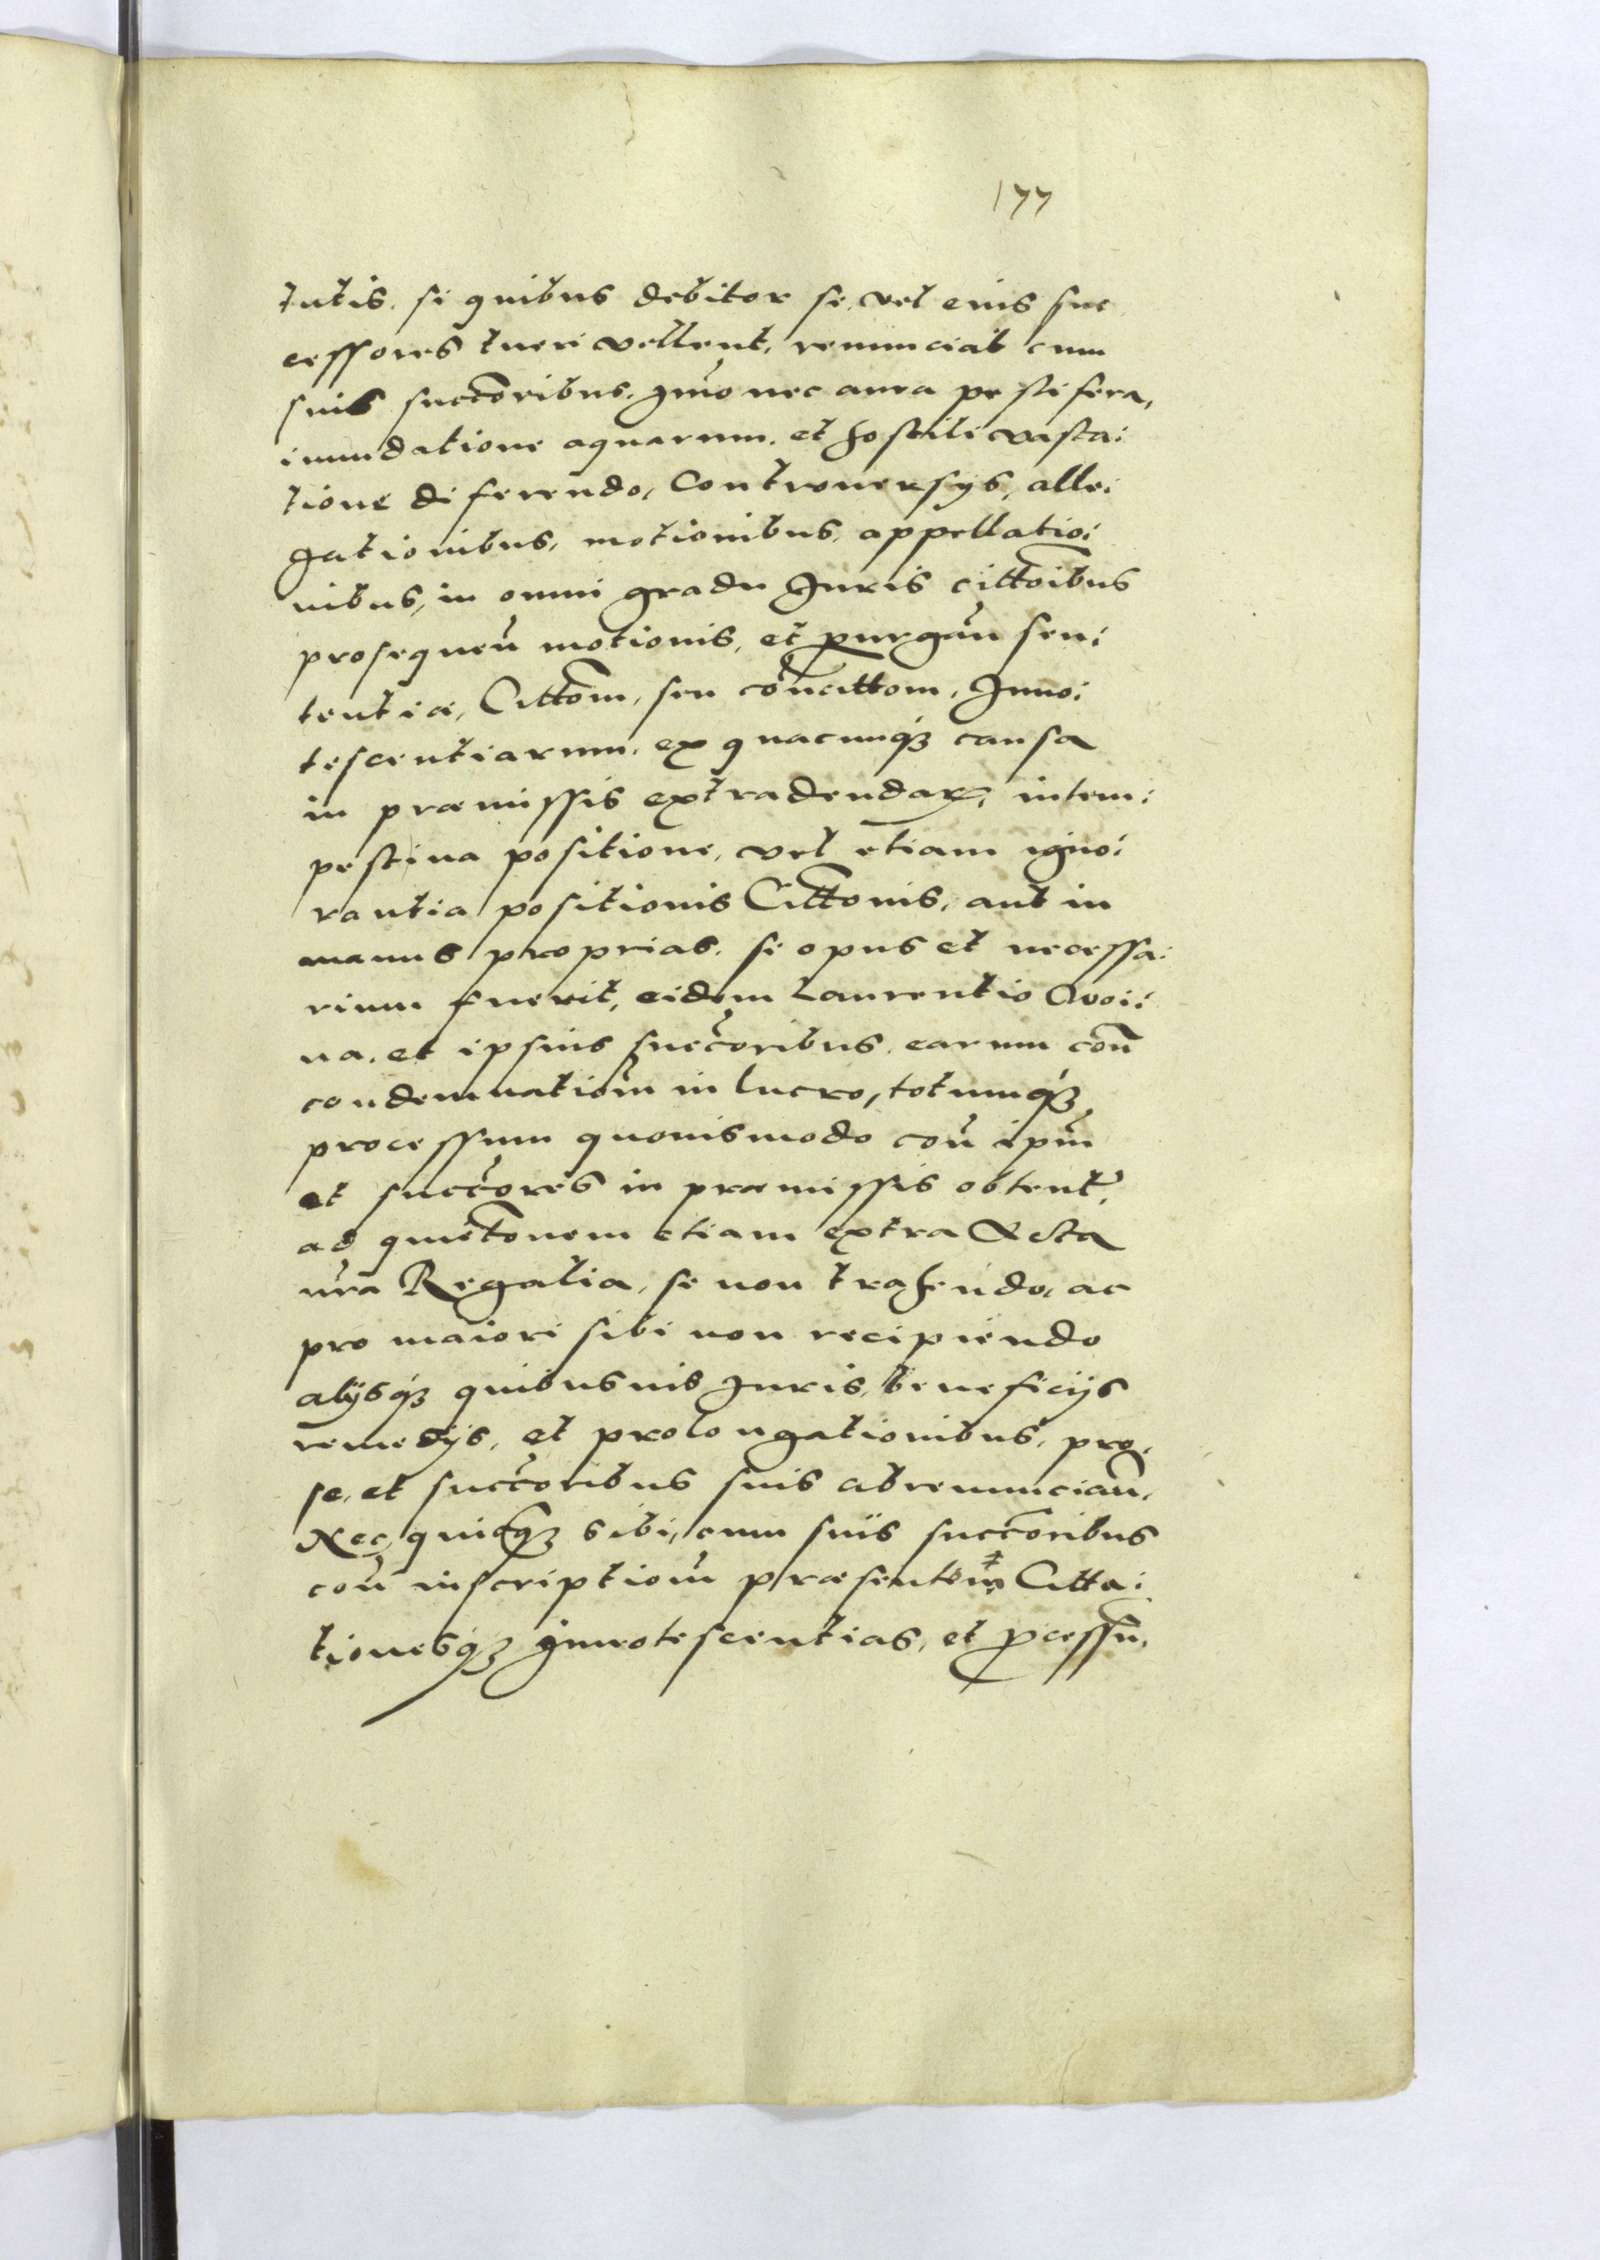 177
tutis, si quibus debitor se, vel eius suc
cessores tueri vellent, renunciat cum
suis succōribus, Imo nec aura pestifera,
inundatione aquarum, et hostili vasta:
tione diferendo, Controuersÿs, alle:
gationibus, motionibus, appellatio:
nibus, in omni gradu Juris cittōibus
prosequen̄ motionis, et purgan̄ sen:
tentiæ, Cittōm, seu concittōm, Inno:
tescentiarum, ex quacunqȝ causa
in præmissis extradendar, intem:
pestiua positione, vel etiam igno:
rantia positionis Cittōnis, aut in
manus proprias, si opus et necessa:
rium fuerit, eidem Laurentio Owoi:
na, et ipsius succōribus, earum con̄
condemnation̄ in lucro, totumqȝ
processum quouismodo con̄ ipm̄
et succōres in præmissis obtent,
ad quietōnem etiam extra Acta
nrā Regalia, se non trahendo, ac
pro maiori sibi non recipiendo
alÿsqȝ quibusuis Juris, beneficÿs
remedÿs, et prolongationibus, pro
se, et succōribus suis abrenuncian̄,
Nec quicqȝ sibi, cum suis succōribus
con̄ inscription̄ præsentem Citta:
tionesqȝ Innotescentias, et pcessū,